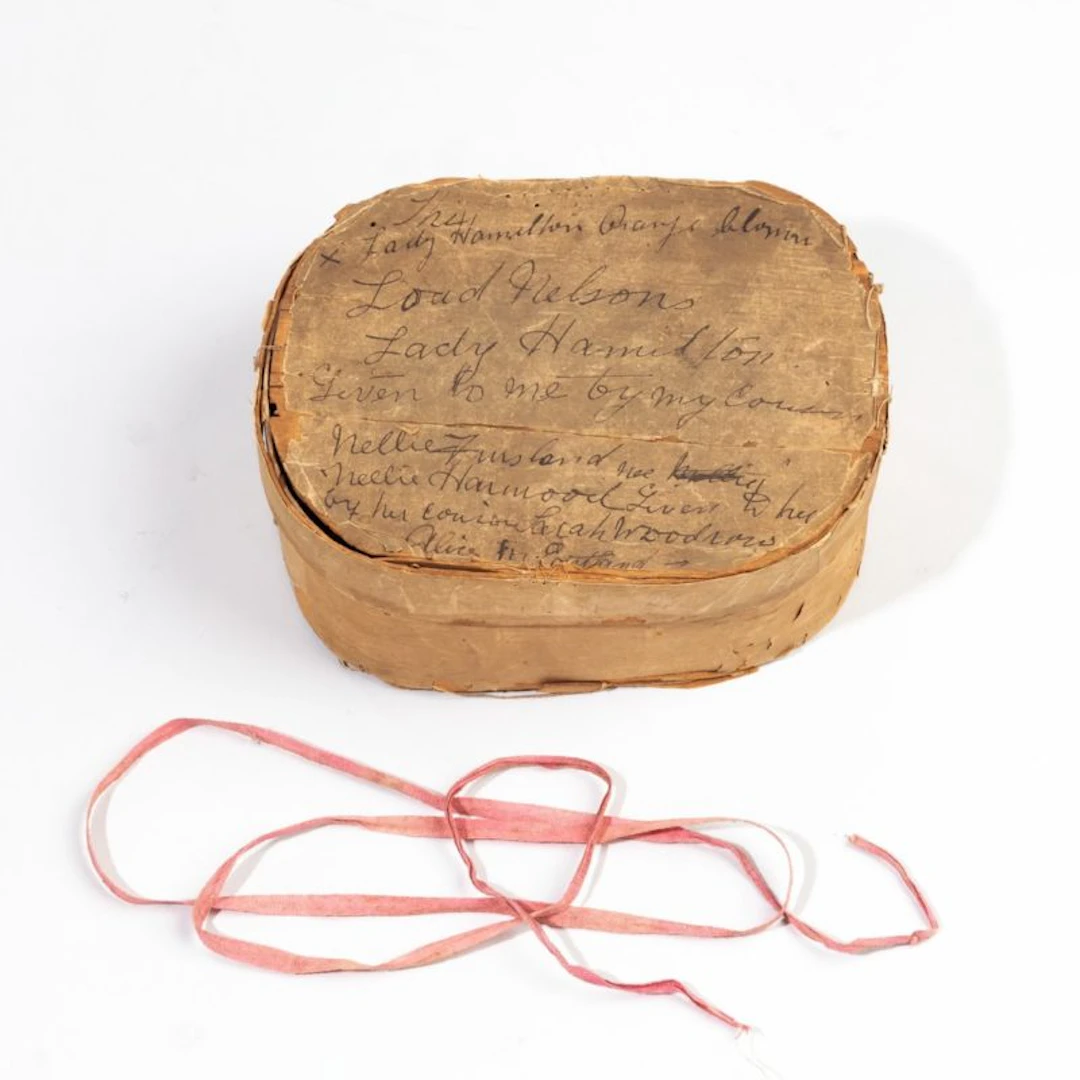 The
x Lady Hamilton Orange blossom
Load Nelsons
Lady Hamilton
Given to me by my Cousin
Nellie nee
Nellie Harwood Given to her
by her cousin Leah Woodrow
Alice M.